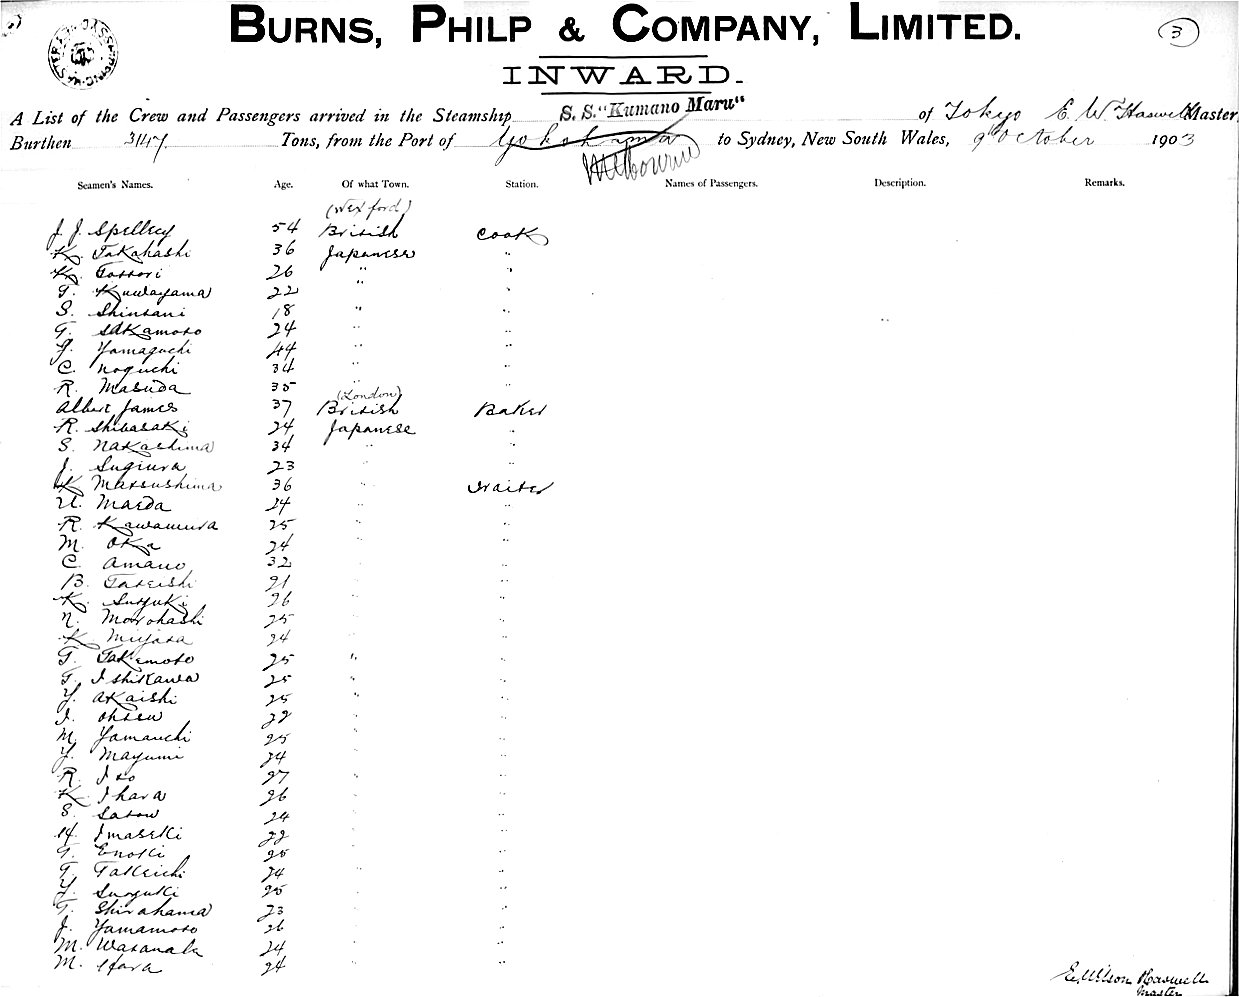 3
BURNS, PHILP & COMPANY, LIMITED.
INWARD.
A List of the Crew and Passengers arrived in the Steamship S. S. "Kumano Maru" of Tokyo E. W. Haswell Master,
Burthen 3147 Tons, from the Port of Yokohama Melbourne to Sydney, New South Wales, 9th October 1903
Seamen's Names. Age. Of what Town. Station. Names of Passengers. Description. Remarks.
(Wexford)
J. J. Spellecy 54 British Cook
K. Takahashi 36 Japanese "
K. Tottori 26 " "
T. Kuwayama 22 " "
S. Shintani 18 " "
G. Sakamoto 24 " "
Y. Yamaguchi 44 " "
C. Noguchi 34 " "
R. Masuda 35 " "
(London)
Albert James 37 British Baker
R. Shibasaki 24 Japanese "
S. Nakashima 34 " "
J. Sugiura 23 " "
K. Matsushima 36 " Waiter
U. Maeda 24 " "
R. Kawamura 25 " "
M. Oka 24 " "
C. Amano 32 " "
B. Tateishi 21 " "
K. Suzuki 26 " "
N. Morohashi 25 " "
K. Miyata 24 " "
T. Takemoto 25 " "
T. Ishikawa 25 " "
Y. Akaishi 25 " "
I. Ohtsu 22 " "
M. Yamauchi 25 " "
Y. Mayumi 24 " "
R. Ito 27 " "
K. Ihara 26 " "
S. Satow 24 " "
H. Imaseki 22 " "
T. Enoki 25 " "
T. Takeichi 24 " "
Y. Suzuki 25 " "
T. Shirahama 23 " "
J. Yamamoto 26 " "
M. Watanabe 24 " "
M. Hara 24 " "
E. Wilson Haswell
Master